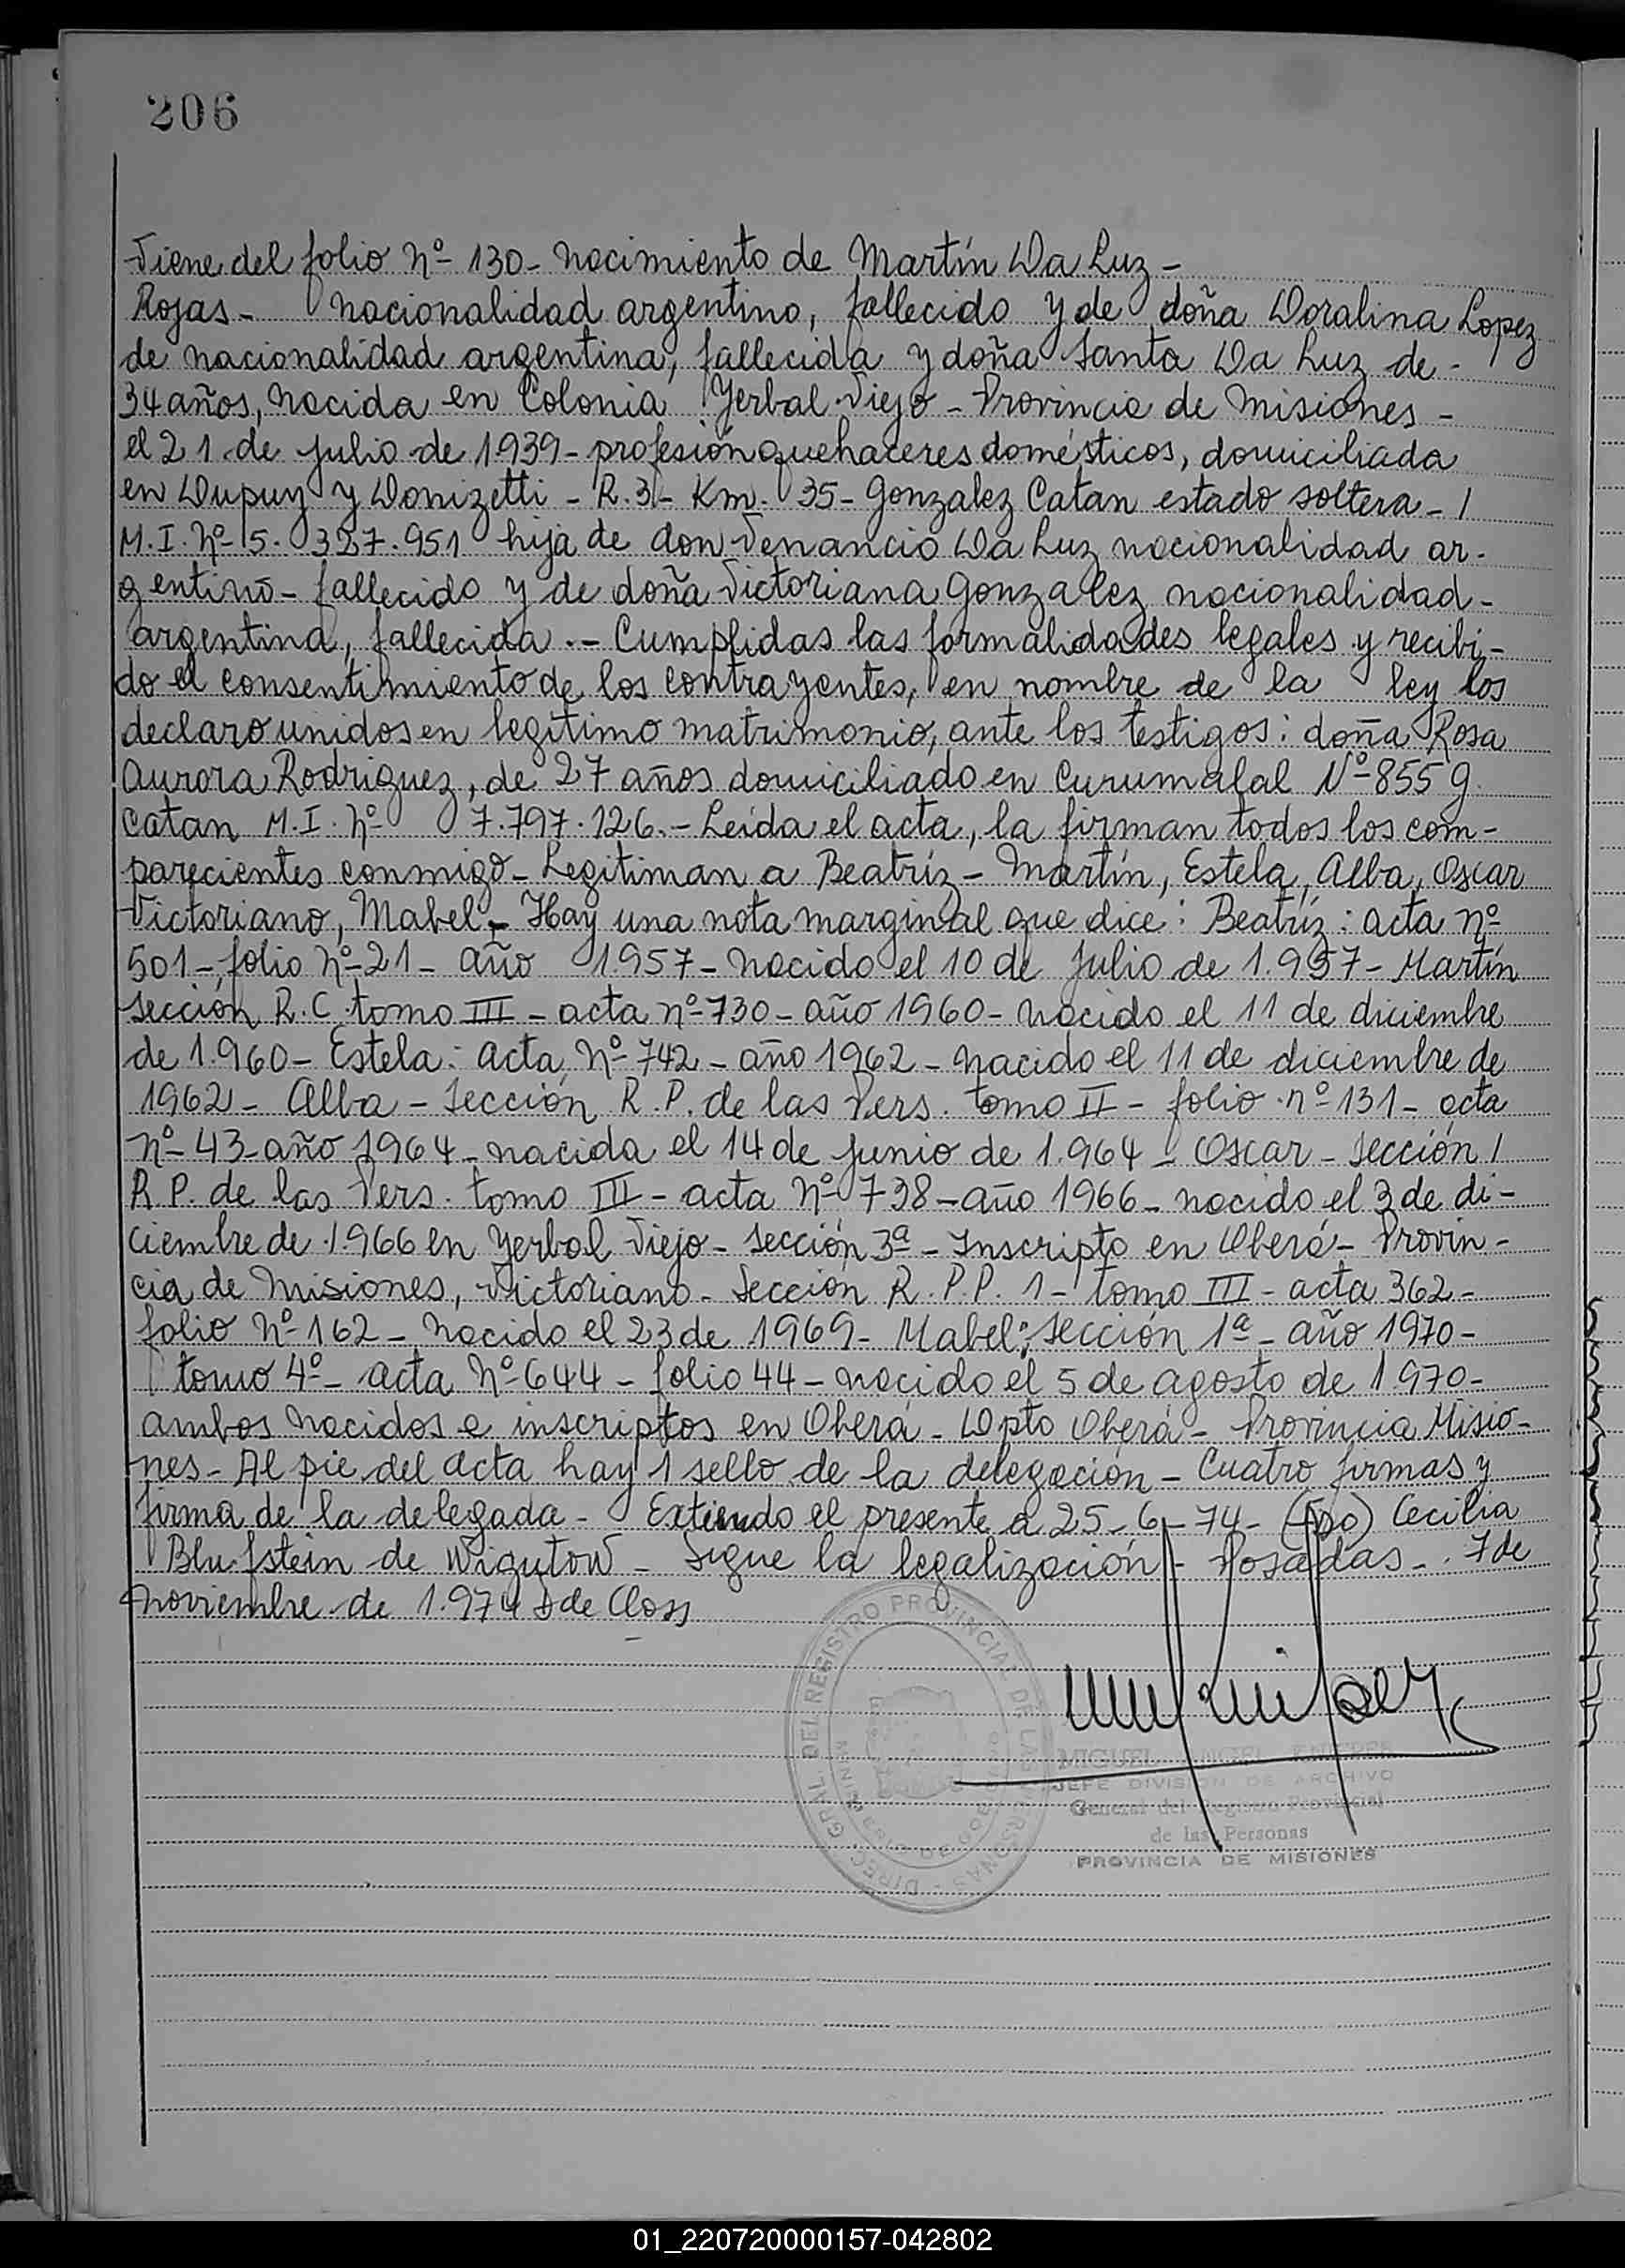 206
Viene del folio Nº 130 - Nacimiento de Martín Da Luz -
Rojas - nacionalidad argentino, fallecido y de doña Doralina Lopez
de nacionalidad argentina, fallecida y doña Santa Da Luz de -
34 años, nacida en Colonia Yerbal Viejo - Provincia de Misiones -
el 21 de julio de 1939 - profesión quehaceres domésticos, domiciliada
en Dupuy y Donizetti - R. 3 - Km. 35 - Gonzalez Catan estado soltera - /
M. I. Nº 5. 327. 951 hija de don Venancio Da Luz nacionalidad ar-
gentino - fallecido y de doña Victoriana Gonzalez nacionalidad -
argentina, fallecida .- Cumplidas las formalidades legales y recibi-
do el consentimiento de los contrayentes, en nombre de la ley los
declaro unidos en legítimo matrimonio, ante los testigos: doña Rosa
Aurora Rodriguez, de 27 años domiciliado en Curumalal Nº 855 G.
Catan M. I. Nº 7. 797. 126. - Leída el acta, la firman todos los com-
parecientes conmigo - Legitiman a Beatríz - Martín, Estela, Alba, Oscar
Victoriano, Mabel - Hay una nota marginal que dice: Beatríz: acta Nº
501 - folio Nº 21 - año 1.957 - Nacido el 10 de Julio de 1.957 - Martín
Sección R. C. tomo III - acta nº 730 - año 1960 - Nacido el 11 de diciembre
de 1.960 - Estela: acta Nº 742 - año 1962 - Nacido el 11 de diciembre de
1962 - Alba - Sección R. P. de las Pers. tomo II - folio nº 131 - acta
Nº 43 - año 1964 - nacida el 14 de junio de 1.964 - Oscar - Sección /
R. P. de las Pers. tomo III - acta Nº 738 - año 1966 - nacido el 3 de di-
ciembre de 1.966 en Yerbal Viejo - Sección 3ª - Inscripto en Oberá - Provin-
cia de Misiones, Victoriano - Sección R. P. P. 1 - tomo III - acta 362 -
folio Nº 162 - Nacido el 23 de 1969 - Mabel: Sección 1ª - año 1970 -
tomo 4º - acta Nº 644 - folio 44 - nacido el 5 de agosto de 1.970 -
ambos nacidos e inscriptos en Oberá - Dpto Oberá - Provincia Misio-
nes - Al pie del acta hay 1 sello de la delegación - Cuatro firmas y
firma de la delegada - Extiendo el presente a 25 - 6 - 74 - (Fdo) Cecilia
Blufstein de Wigutow - Sigue la legalización - Posadas - 7 de
noviembre de 1.974 de Closs
DIREC. GRAL. DEL REGISTRO PROVINCIAL DE LAS PERSONAS
MIGUEL ANGEL
JEFE DIVISION DE ARCHIVO
General del Registro Provincial
de las Personas
PROVINCIA DE MISIONES
01_220720000157-042802